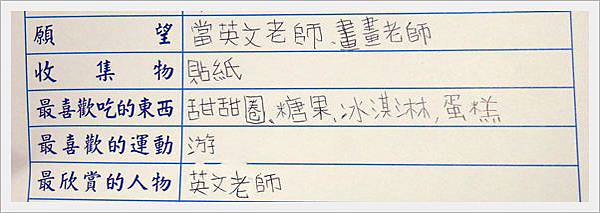 願望 當英文老師、畫畫老師
收集物 貼紙
最喜歡吃的東西 甜甜圈、糖果,冰淇淋,蛋糕
最喜歡的運動 游
最欣賞的人物 英文老師